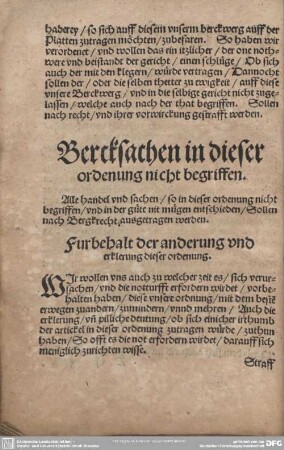 haderey / so sich auff diesem vnserm berckwerg auff der
Platten zutragen möchten / zubefaren. So haben wir
verordenet / vnd wollen das ein itzlicher / der one noth-
were vnd beistandt der gericht / einen schlüge / Ob sich
auch der mit den klegern / würde vertragen / Dannocht
sollen der / oder die selben thetter zu ewigkeit / auff diese
vnsere Berckwerg / vnd in die selbige gericht nicht zuge-
lassen / welche auch nach der that begriffen. Sollen
nach recht / vnd ihrer vorwirckung gestrafft werden.
Bercksachen in dieser
ordenung nicht begriffen.
Alle handel vnd sachen / so in dieser ordenung nicht
begriffen / vnd in der güte nit mügen entschieden / Sollen
nach Bergkrecht ausgetragen werden.
Furbehalt der anderung vnd
erklerung dieser ordenung.
WIr wollen vns auch zu welcher zeit es / sich verur-
sachen / vnd die notturfft erfordern wirdet / vorbe-
halten haben / diese vnsere ordnung / mit dem bestē
erwegen zuandern / zumindern / vnnd mehren / Auch die
erklerung / vn̄ pilliche deutung / ob sich einicher irthumb
der artickel in dieser ordenung zutragen würde / zuthun
haben / So offt es die not erfordern wirdet / darauff sich
meniglich zurichten wisse.
Straff